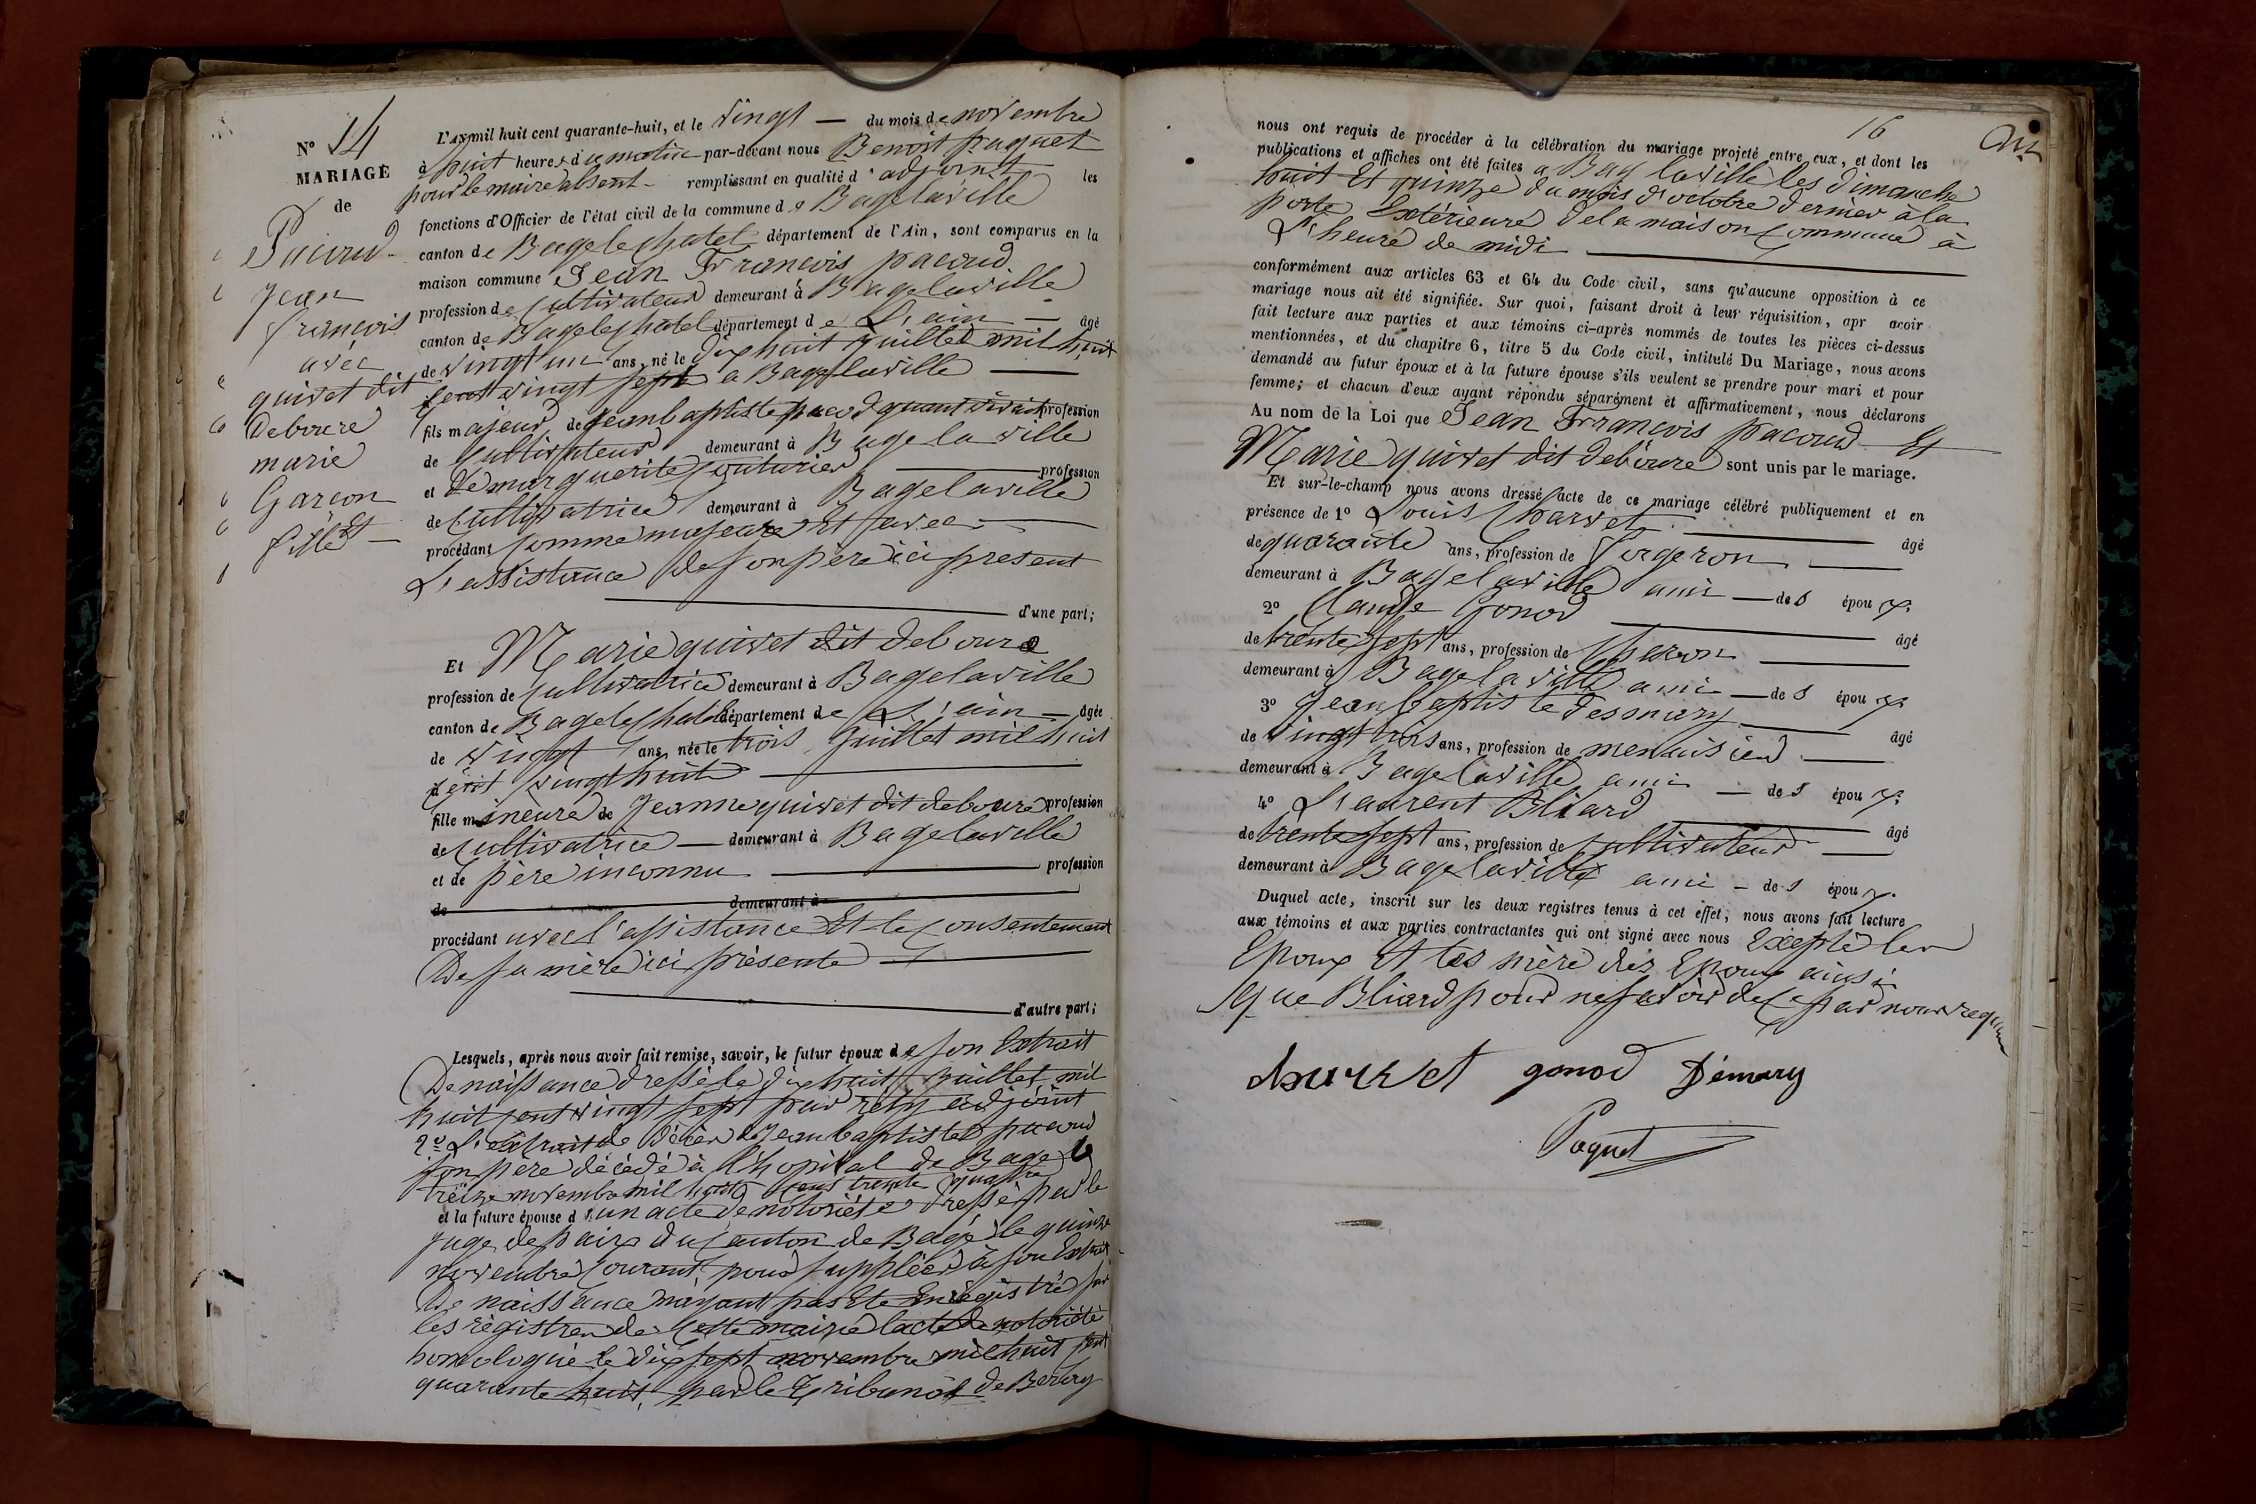 N° 14
MARIAGE
de
Pacoud
Jean
françois
avec
quivet dit
Deboure
marie
Garçon
Et
fille
L'AN mil huit cent quarante-huit, et le vingt — du mois de novembre
à huit heures du matin par-devant nous Benoit paquet
pour le maire absent - remplissant en qualité d'adjoint les
fonctions d'Officier de l'état civil de la commune de Bagelaville
canton de Bagelechatel département de l'Ain, sont comparus en la
maison commune Jean François pacoud
profession de Cultivateur demeurant à Bagelaville
canton de Bagelechatel département de L'ain — âgé
de vingt un ans, né le dix huit juillet mil huit
Cent vingt sept a Bagelaville
fils majeur de jeanbaptiste pacoud quant vivait profession
de Cultivateur demeurant à Bagelaville
et De marguerite Couturier profession
de Cultivatrice demeurant à Bagelaville
procédant Comme majeur Et avec
L'assistance de son père ici present
d'une part;
Et Marie quivet dit deboure
profession de Cultivatrice demeurant à Bagelaville
canton de Bagelechatel département de L'ain — âgée
de vingt ans, née le trois juillet mil huit
Cent vingt huit
fille mineure de Jeanne quivet dit deboure profession
de Cultivatrice — demeurant à Bagelaville
et de père inconnu profession
de demeurant à
procédant avec l'assistance Et le Consentement
De sa mère ici présente
d'autre part;
Lesquels, après nous avoir fait remise, savoir, le futur époux de son Extrait
De naissance dressé le dix huit Juillet mil
huit cent vingt sept par adjoint
2° L'extrait de décès de Jeanbaptiste pacoud
son père décédé à l'hopital de Bagé le
treize novembre mil huit cent trente quatre
et la future épouse d'un acte de notoriété dressé par le
juge de paix du Canton de Bagé le quinze
novembre Courant, pour suppléer à son Extrait
De naissance n'ayant pas Eté Enregistré sur
les registres de Cette mairie l'acte de notoriété
homologué le dix sept novembre mil huit cent
quarante huit, par le Tribunal de Bourg
16
nous ont requis de procéder à la célébration du mariage projeté entre eux, et dont les
publications et affiches ont été faites a Bag laville les dimanche
huit Et quinze du mois d'octobre dernier à la
porte Extérieure de la maison Commune à
L'heure de midi
conformément aux articles 63 et 64 du Code civil, sans qu'aucune opposition à ce
mariage nous ait été signifiée. Sur quoi, faisant droit à leur réquisition, apr avoir
fait lecture aux parties et aux témoins ci-après nommés de toutes les pièces ci-dessus
mentionnées, et du chapitre 6, titre 5 du Code civil, intitulé Du Mariage, nous avons
demandé au futur époux et à la future épouse s'ils veulent se prendre pour mari et pour
femme; et chacun d'eux ayant répondu séparément et affirmativement, nous déclarons
Au nom de la Loi que Jean François pacoud Et
Marie quivet dit deboure sont unis par le mariage.
Et sur-le-champ nous avons dressé acte de ce mariage célébré publiquement et en
présence de 1° Louis Charvet âgé
de quarante ans, profession de forgeron
demeurant à Bagelaville ami — des époux
2° Claude Gonod âgé
de trente sept ans, profession de Charon
demeurant à Bagelaville ami — des époux
3° Jean baptiste desmary âgé
de vingt trois ans, profession de menuisier
demeurant à Bagelaville ami — des époux
4° Laurent Bliard âgé
de trente sept ans, profession de Cultivateur
demeurant à Bagelaville ami — des époux
Duquel acte, inscrit sur les deux registres tenus à cet effet, nous avons fait lecture
aux témoins et aux parties contractantes qui ont signé avec nous Excepté les
Epoux Et les mère des Epoux ainsi
que Bliard pour ne savoir de Ce par nous requis
charvet gonod Démary
Paquet